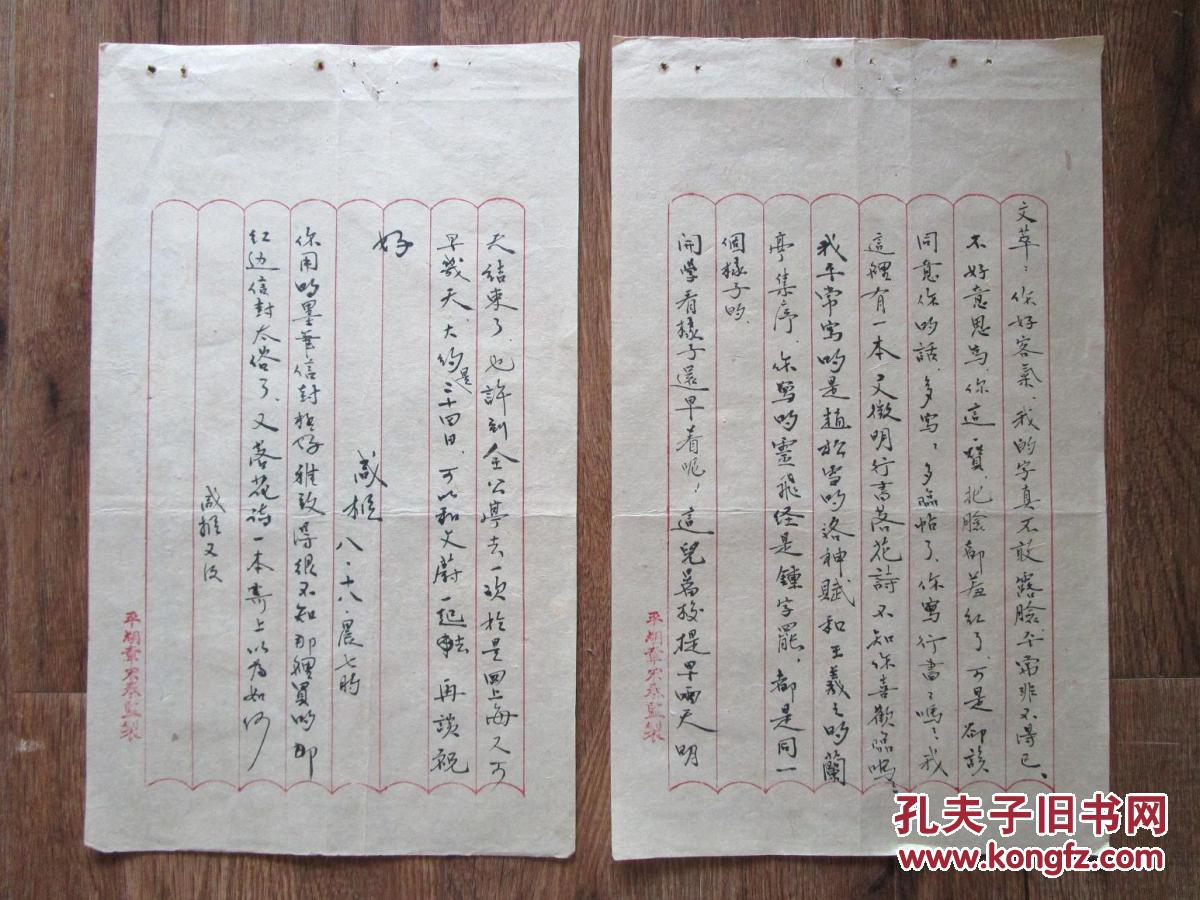 文萃：你好客氣、我的字真不敢露臉、平常非不得已、
不好意思寫、你這一贊、把臉都羞紅了、可是卻該
同意你的話、多寫、多臨帖了、你寫行書嗎、我
這裡有一本文徵明行書落花詩不知你喜歡臨嗎
我平常寫的是趙松雪的洛神賦和王羲之的蘭
亭集序、你寫的靈飛經是鍾字罷、都是同一
個樣子的、
開學看樣子還早着呢！這兒舊校提早兩天明
平湖章宏泰監製
天結束了、也許到金公亭去一次於是回上海又可
早幾天、大約是二十四日、可以和文蔚一起去 再談祝
好
咸 八、十八、晨七時
你用的墨 信封挺好雅致得很不知那裡買的那
紅边信封太俗了、又落花詩一本寄上以為如何
咸 又及
平湖章宏泰監製
孔夫子旧书网
www.kongfz.com